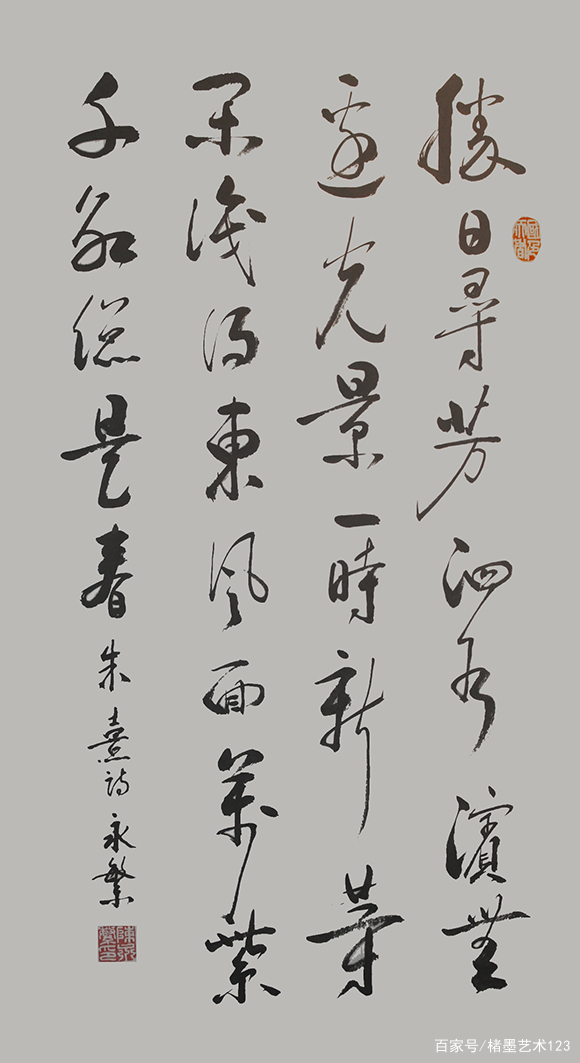 勝日尋芳泗水濱無
邊光景一時新等
閑識得東風面萬紫
千紅總是春 朱熹詩 永繁
百家号/楮墨艺术123